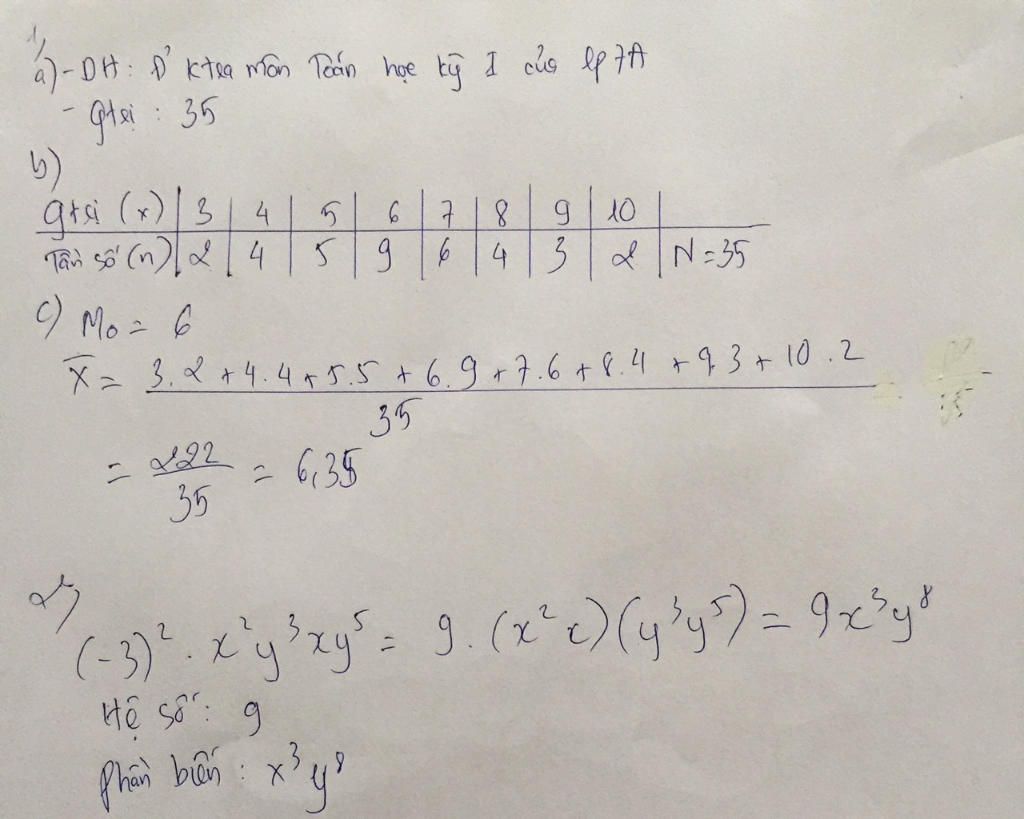 1,
a) - DH: Đ' Ktra môn Toán học kỳ I của lp 7A
- gtrị : 35
b)
gtrị (x) | 3 | 4 | 5 | 6 | 7 | 8 | 9 | 10 |
Tần số (n) | 2 | 4 | 5 | 9 | 6 | 4 | 3 | 2 | N = 35
c) Mo = 6
X̄ = 3.2 + 4.4 + 5.5 + 6.9 + 7.6 + 8.4 + 9.3 + 10.2
35
= 222/35 = 6,35
2,
(-3)². x²y³xy⁵ = 9. (x²x)(y³y⁵) = 9x³y⁸
Hệ số : 9
Phần biến : x³y⁸